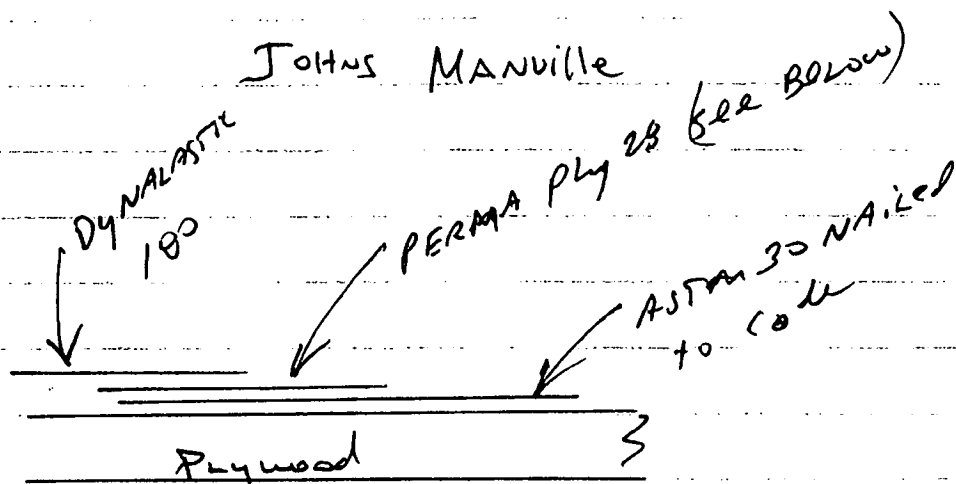 JOHNS MANVILLE
DYNALASTIC
180
PERMA Ply 28 (See BELOW)
ASTM 30 NAILED
to code
Plywood